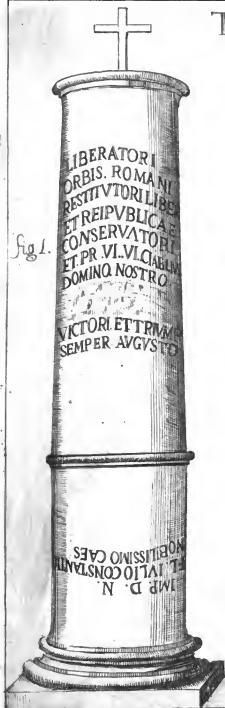 T
fig 1.
LIBERATORI
ORBIS. ROMANI
RESTITVTORI LIBER
ET REIPVBLICAE
CONSERVATORI
ET PR VI..VI.CIARVM
DOMINO NOSTRO
VICTORI ET TRIVMP
SEMPER AVGVSTO
IMP. D. N.
FL. IVLIO CONSTANTI
NOBILISSIMO CAES